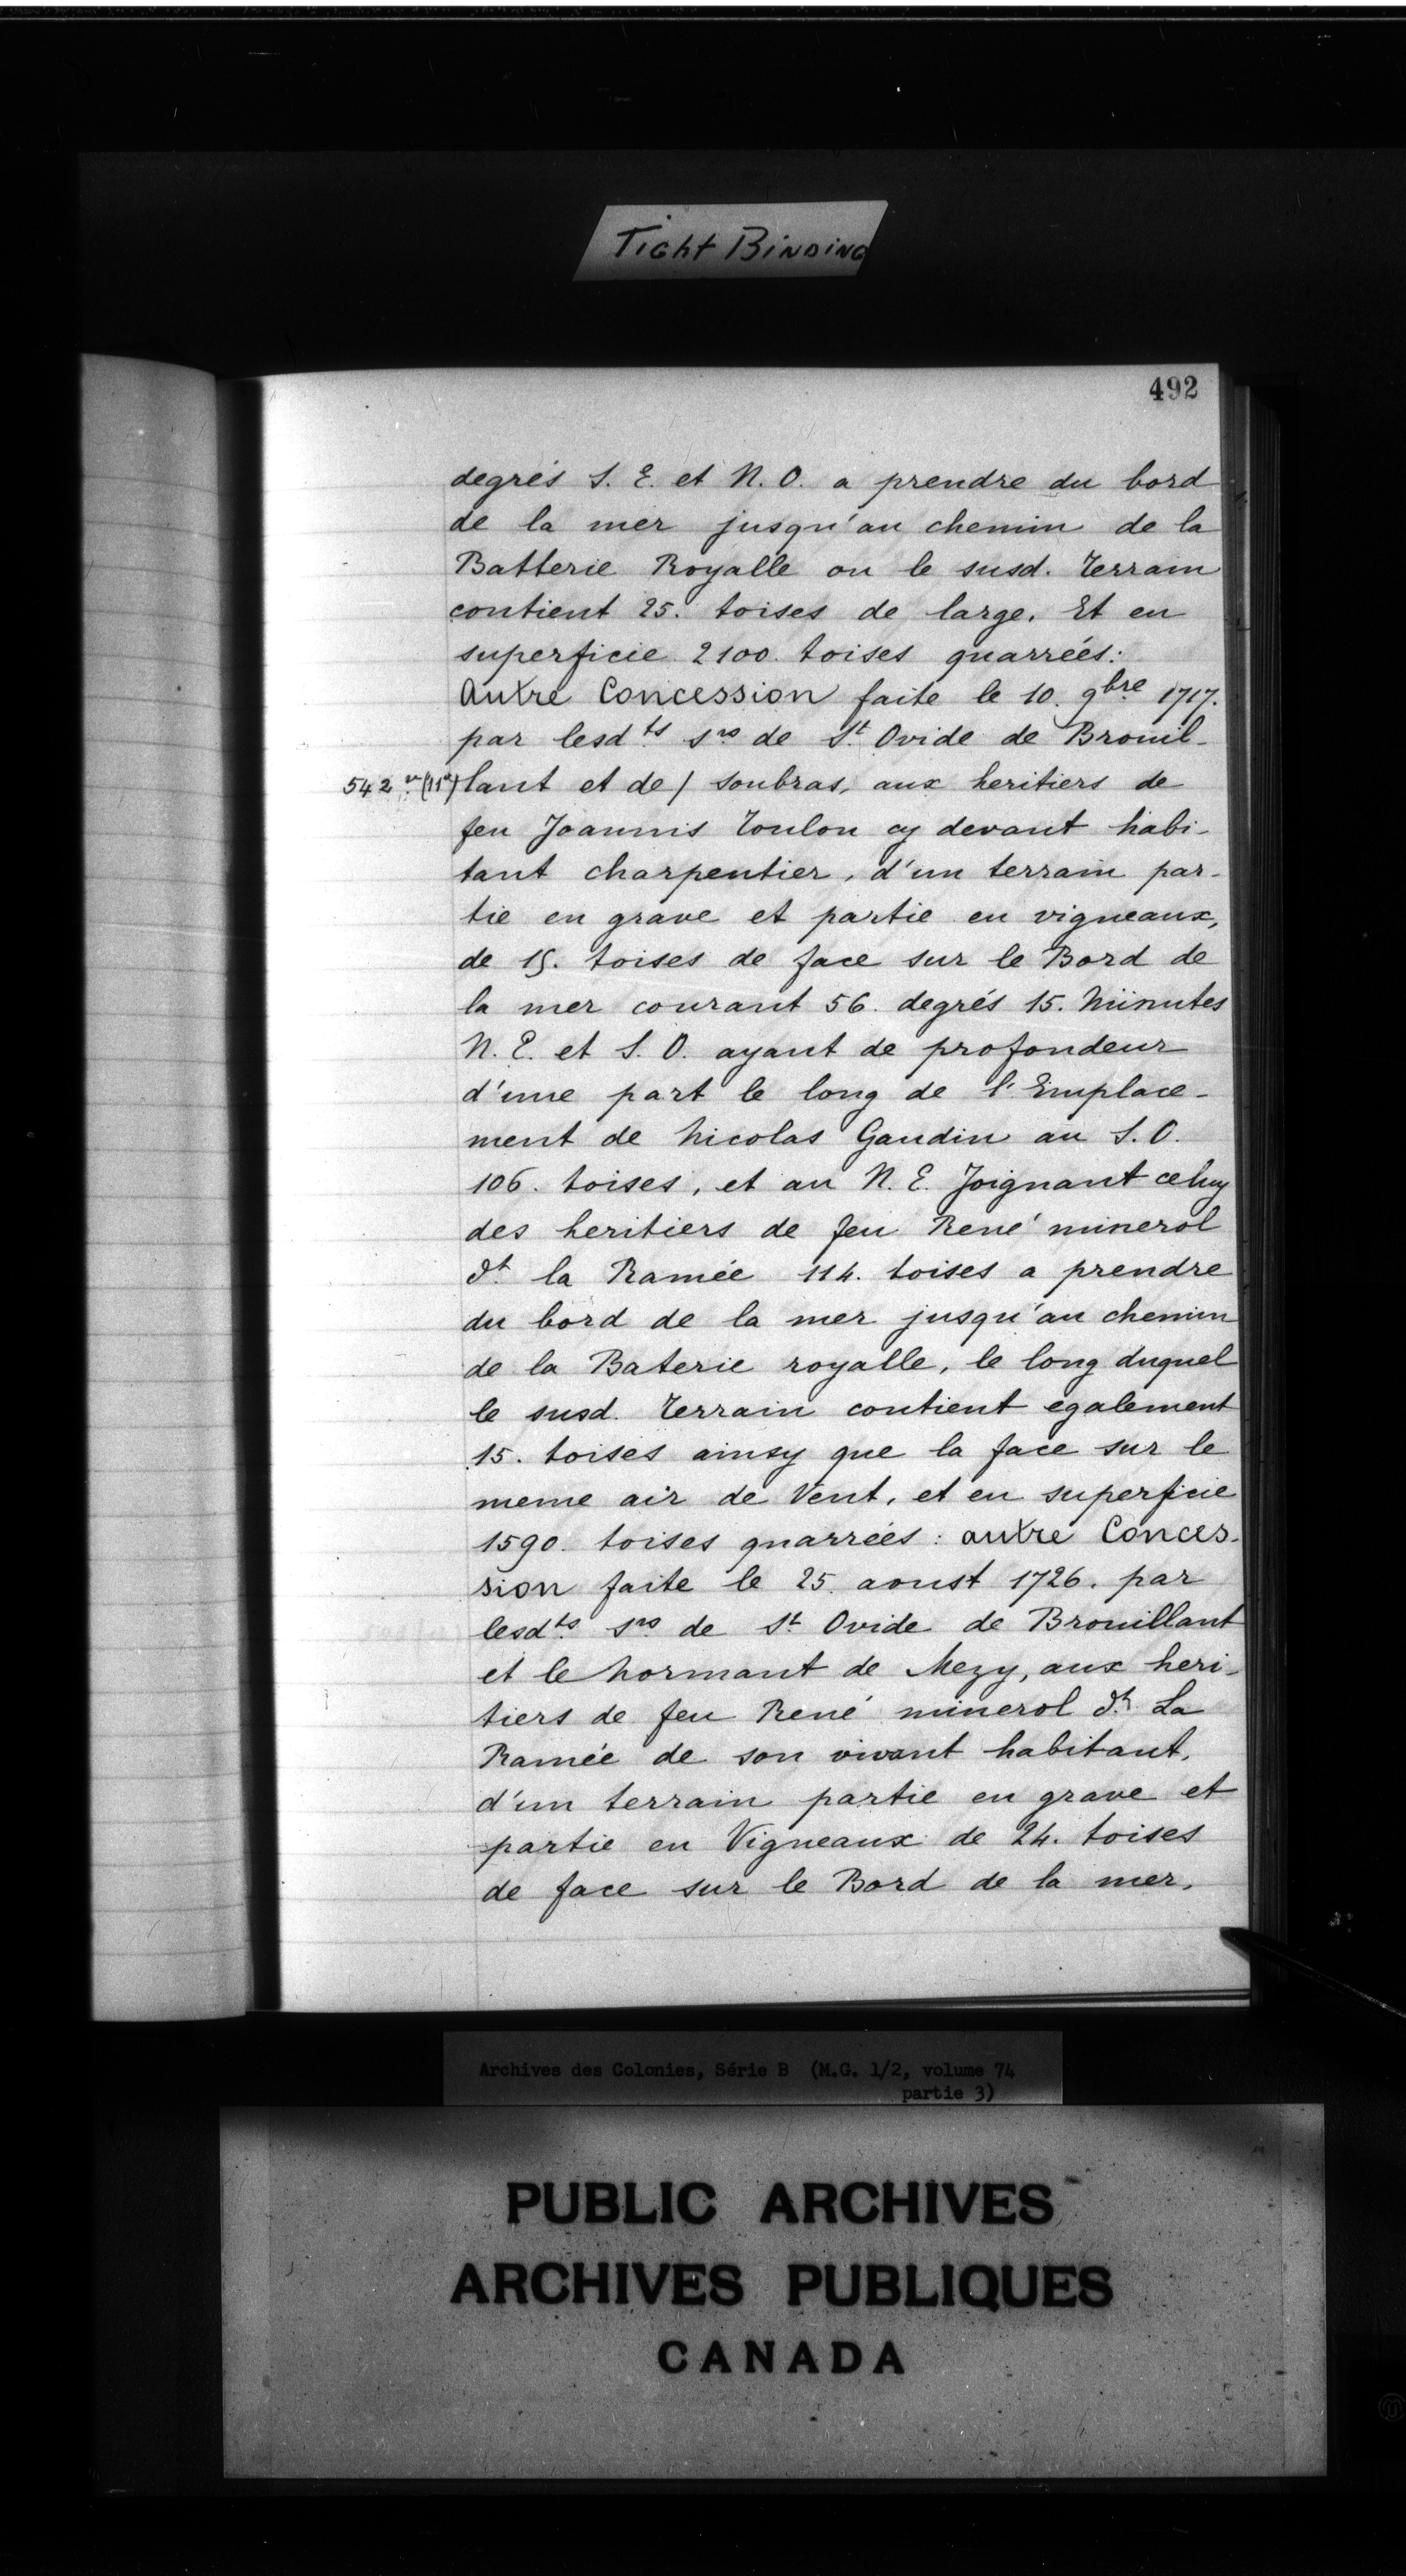 Tight Binding
492
degrés S. E. et N. O. a prendre du bord
de la mer jusqu'au chemin de la
Batterie Royalle ou le susd. Terrain
contient 25. toises de large. Et en
superficie 2100. toises quarreés:
Autre Concession faite le 10. 9bre 1717.
par lesdts srs de St Ovide de Brouil-
542 vo (11e) lant et de / soubras, aux heritiers de
feu Joannis Toulon cy devant habi-
tant charpentier, d'un terrain par-
tie en grave et partie en vigneaux,
de 15. toises de face sur le Bord de
la mer courant 56. degrés 15. Minutes
N. E. et S. O. ayant de profondeur
d'une part le long de l'Emplace-
ment de Nicolas Gaudin au S. O.
106. toises, et au N. E. Joignant celuy
des heritiers de feu René minerol
dt la Ramée 114. toises a prendre
du bord de la mer jusqu'au chemin
de la Baterie royalle, le long duquel
le susd. Terrain contient egalement
15. toises ainsy que la face sur le
meme air de Vent, et en superficie
1590. toises quarreés: autre Conces-
sion faite le 25. aoust 1726. par
lesdts srs de St Ovide de Brouillant
et le Normant de Mezy, aux heri-
tiers de feu René minerol dt La
Ramée de son vivant habitant,
d'un terrain partie en grave et
partie en Vigneaux de 24. toises
de face sur le Bord de la mer,
Archives des Colonies, Série B (M.G. 1/2, volume 74
partie 3)
PUBLIC ARCHIVES
ARCHIVES PUBLIQUES
CANADA